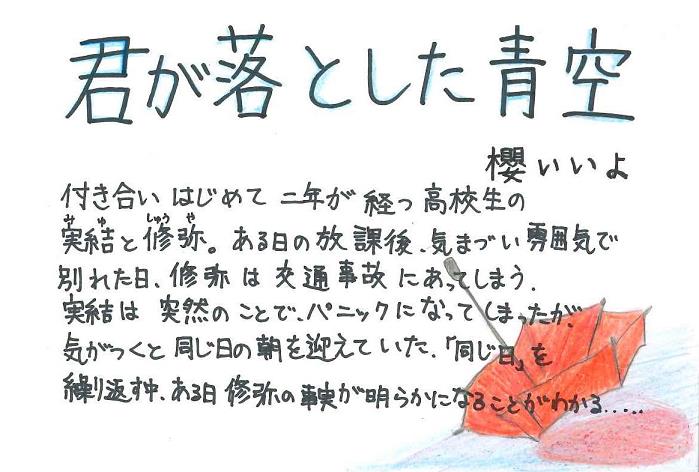 君が落とした青空
櫻いいよ
付き合いはじめて二年が経つ高校生の
実結と修弥。ある日の放課後、気まづい雰囲気で
みゆ しゅうや
別れた日、修弥は交通事故にあってしまう。
実結は突然のことで、パニックになってしまったが、
気がつくと同じ日の朝を迎えていた。「同じ日」を
繰り返す中、ある日修弥の事実が明らかになることがわかる.....